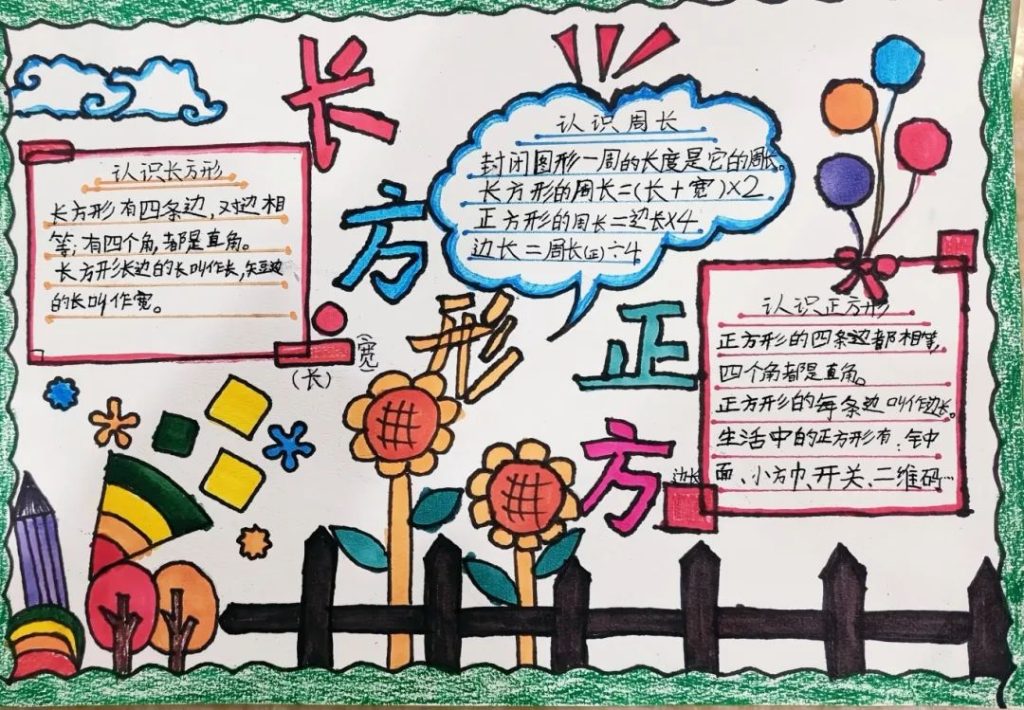 长方形
正方
认识长方形
长方形有四条边,对边相
等;有四个角,都是直角。
长方形长边的长叫作长,短边
的长叫作宽。
(长)
(宽)
认识周长
封闭图形一周的长度是它的周长。
长方形的周长=(长+宽)×2
正方形的周长=边长×4
边长=周长(正)÷4
认识正方形
正方形的四条边都相等,
四个角都是直角。
正方形的每条边叫作边长。
生活中的正方形有:钟中
面、小方巾、开关、二维码…
边长